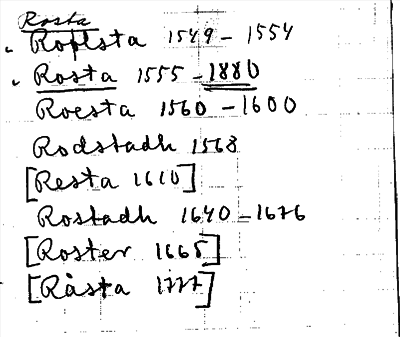 Rosta
Roplsta 1549 - 1554
Rosta 1555 - 1880
Roesta 1560 - 1600
Rodstadh 1568
[Resta 1610]
Rostadh 1640 - 1676
[Roster 1665]
[Råsta 1777]